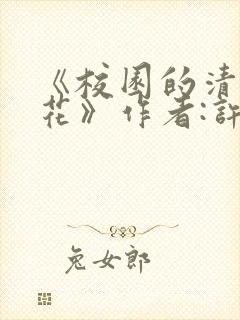 《校园的清
花》作者:許
兔女郎